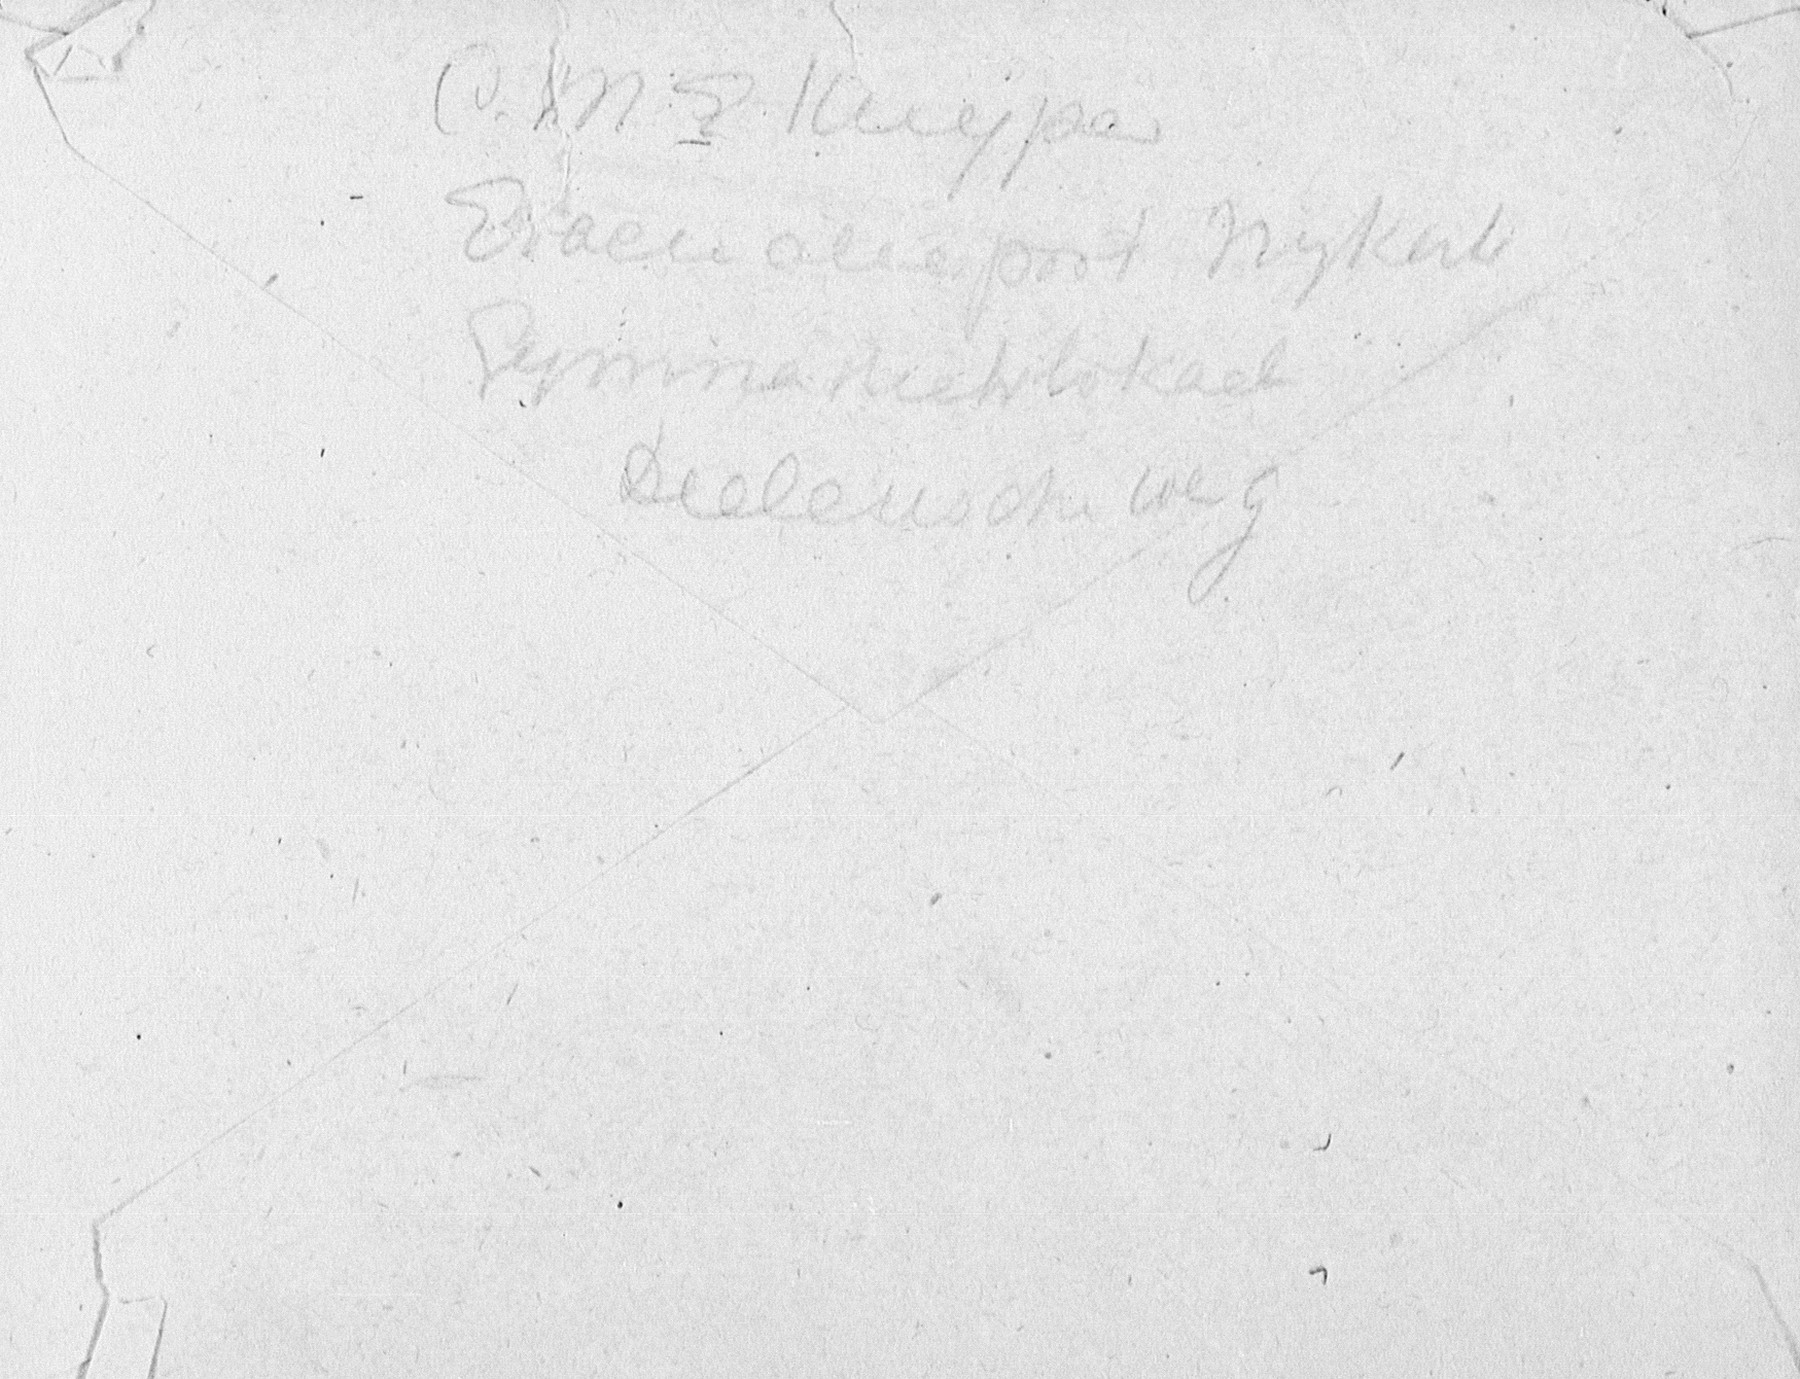 Kuyper
Evacuatiepost Nykerk
Gymnastieklokaal
Deelensche weg